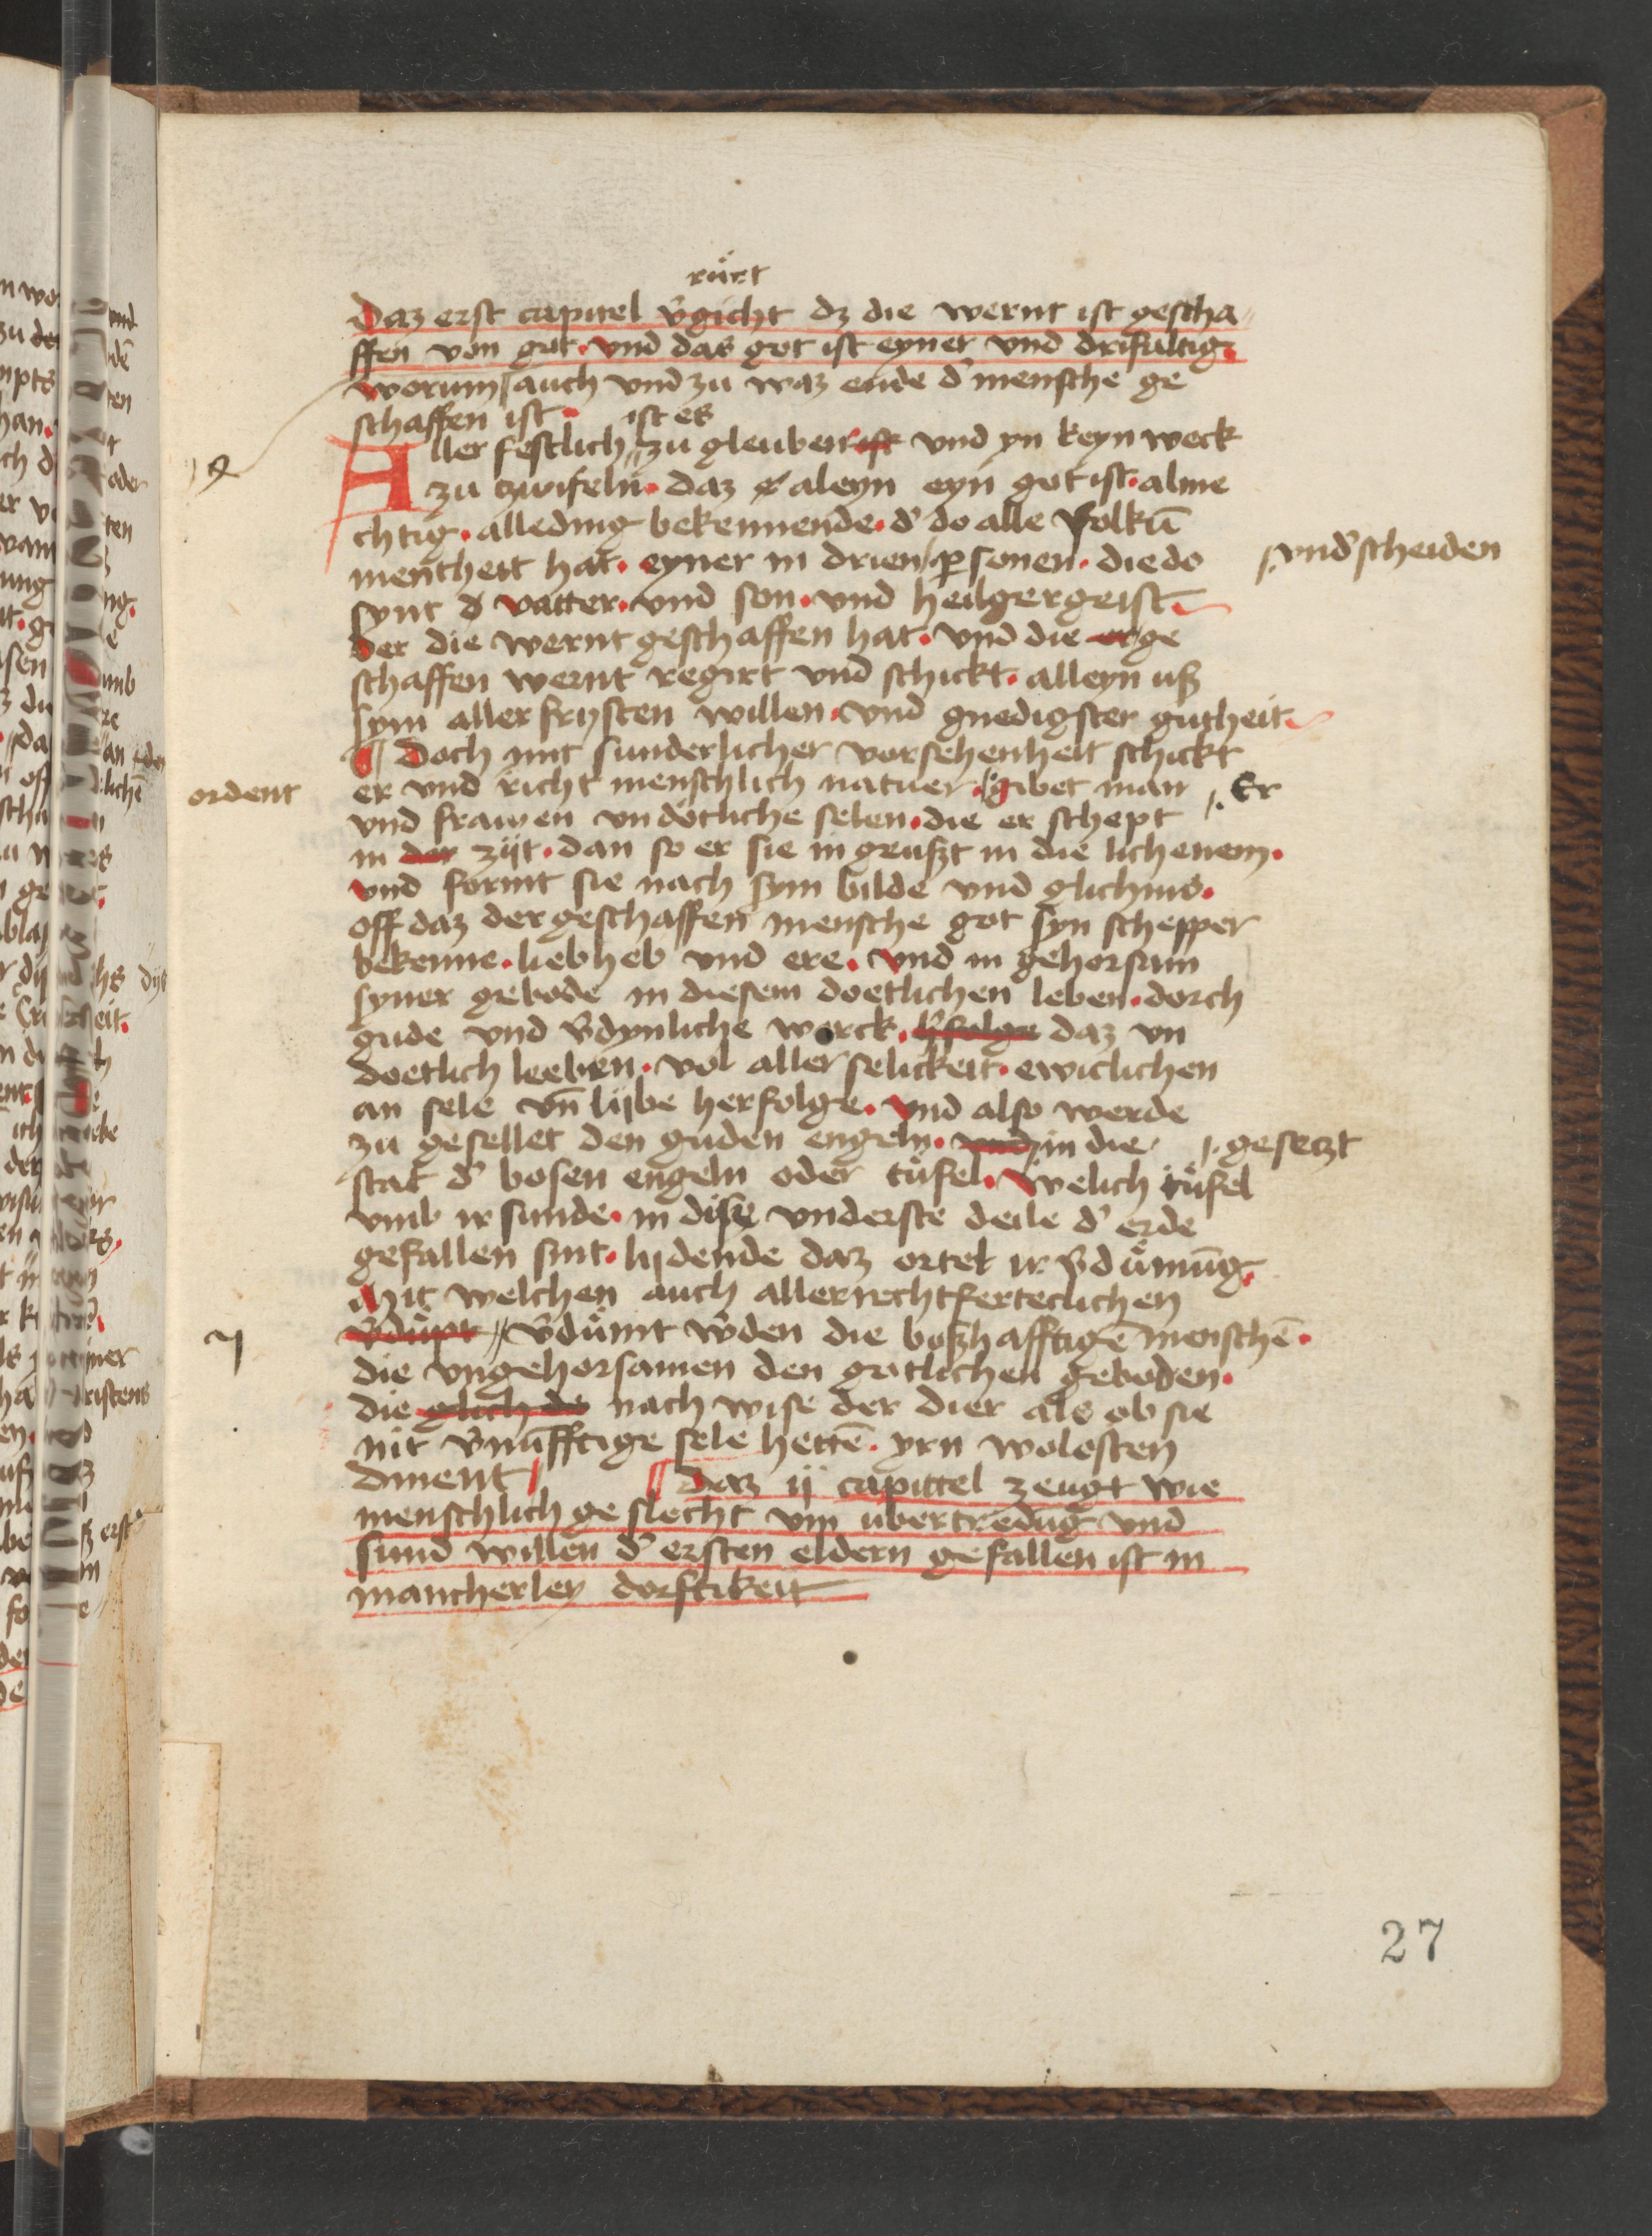 rürt
Daz erst capittel v̄gicht dz die wernt ist gescha
ffen von got · vnd das got ist eyner vnd drifaltig ·
worum auch vnd zu waz ende d' mensche ge
schaffen ist · ist es
Aller festlich zu gleuben ist vnd yn keyn weck
zu tzwifeln · daz aleyn eyn got ist · alme
chtig · alleding bekennende · d' do alle volkū
mentheit hat · eyner in drien personen · die do
vnd'scheiden
synt d' vatter · vnd son · vnd heilger geist
der die wernt geschaffen hat · vnd die er ge
schaffen wernt regirt vnd schickt · alleyn uß
sym aller frysten willen · vnd gnedigster gutheit
Doch mit sunderlicher vorsehenheit schickt
ordent
er vnd richt menschlich natuer · gibet man
Er
vnd frauwen vndötliche selen · die er schept
in der zijt · dan so er sie in geußt in die lichenem ·
vnd formt sie nach sym bilde vnd glichnis ·
off daz der geschaffen mensche got syn schepper
bekenne · lieb heb vnd ere · vnd in gehorsam
syner gebode in diesem doetlichen leben · dorch
gude vnd v̄dynliche werck · h'folge daz vn
doetlich leeben · vol aller selickeit · ewiclichen
an sele vn̄ lijbe herfolge · vnd also werde
zu gesellet den guden engeln · vnd in die
gesetzt
stat d' bosen engeln oder tüfel · welich tüfel
vmb ir sunde · in dise vnderste deile d' erde
gefallen sint · lijdende daz ortel ir v̄dümūg ·
Mit welchen auch allerrechtferteclichen
v̄düpt v̄dümt w'den die boßhafftige menschē ·
die vngehorsamen den gotlichen geboden ·
die glich do nach wise der dier als ob sie
nit v̄nūfftige sele hettē · yrn wolosten
dinent daz ij capittel zeugt wie
menschlich geslecht vm ubertredūg vnd
sund willen d' ersten eldern gefallen ist in
mancherley dorftikeit
27